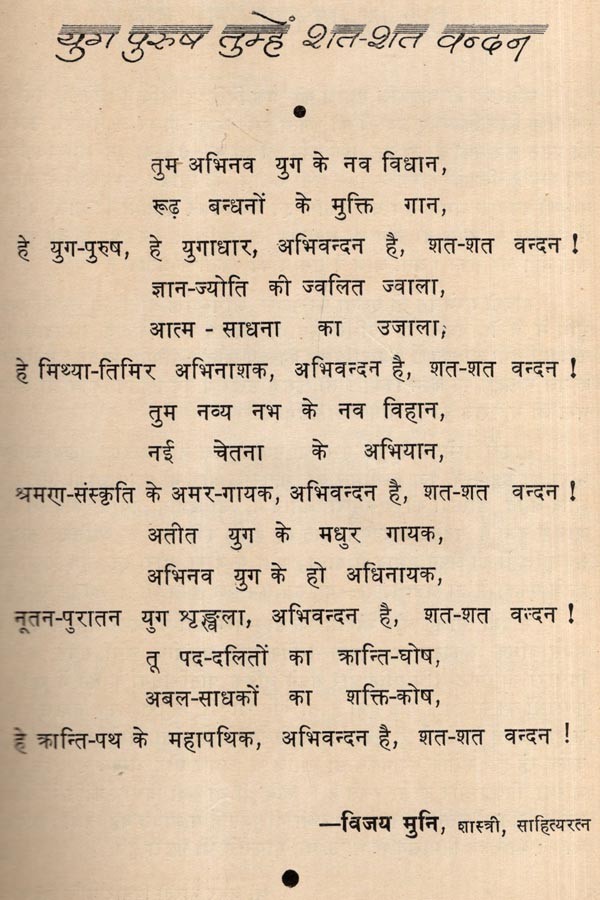 युग पुरुष तुम्हें शत-शत वन्दन
तुम अभिनव युग के नव विधान,
रूढ़ बन्धनों के मुक्ति गान,
हे युग-पुरुष, हे युगाधार, अभिवन्दन है, शत-शत वन्दन !
ज्ञान-ज्योति की ज्वलित ज्वाला,
आत्म - साधना का उजाला,
हे मिथ्या-तिमिर अभिनाशक, अभिवन्दन है, शत-शत वन्दन !
तुम नव्य नभ के नव विहान,
नई चेतना के अभियान,
श्रमण-संस्कृति के अमर-गायक, अभिवन्दन है, शत-शत वन्दन !
अतीत युग के मधुर गायक,
अभिनव युग के हो अधिनायक,
नूतन-पुरातन युग शृङ्खला, अभिवन्दन है, शत-शत वन्दन !
तू पद-दलितों का क्रान्ति-घोष,
अबल-साधकों का शक्ति-कोष,
हे क्रान्ति-पथ के महापथिक, अभिवन्दन है, शत-शत वन्दन !
—विजय मुनि, शास्त्री, साहित्यरत्न